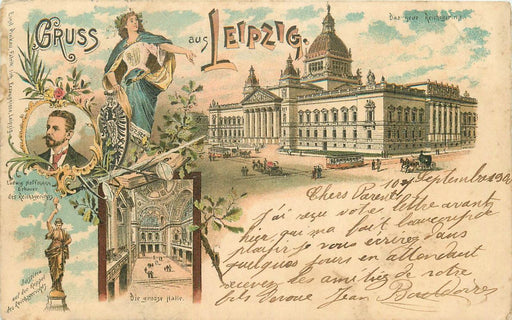 Gruss aus Leipzig.
Das neue Reichsgericht
Ludwig Hoffmann
Erbauer
des Reichsgerichts
auf der Kuppel
des Reichsgerichts
Die grosse Halle.
Septembre
Chers Parents
j'ai reçu votre lettre avant
hier, qui m'a fait beaucoup de
plaisir je vous écrirez dans
quelques jours en attendant
recevez les amitiés de votre
fils Jean